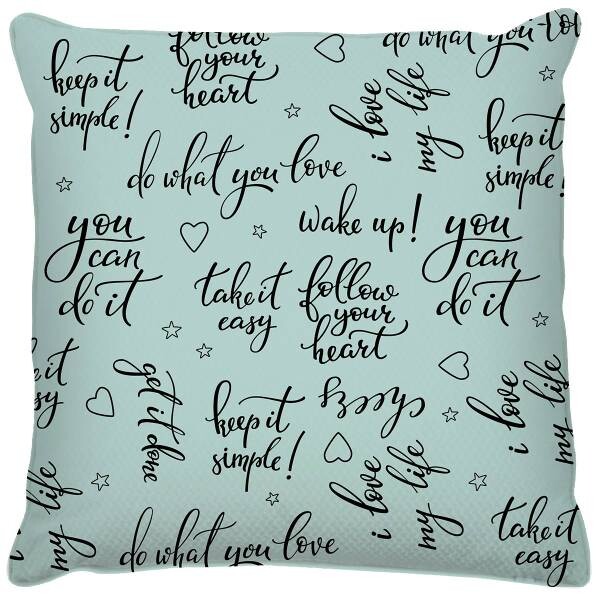 follow
your
heart
do what you love
keep it
simple!
i love
my life
keep it
simple!
do what you love
you
can
do it
wake up!
you
can
do it
take it
easy
follow
your
heart
e it
sy
get it done
keep it
simple!
i love
my life
i love
my life
my life
do what you love
take it
easy